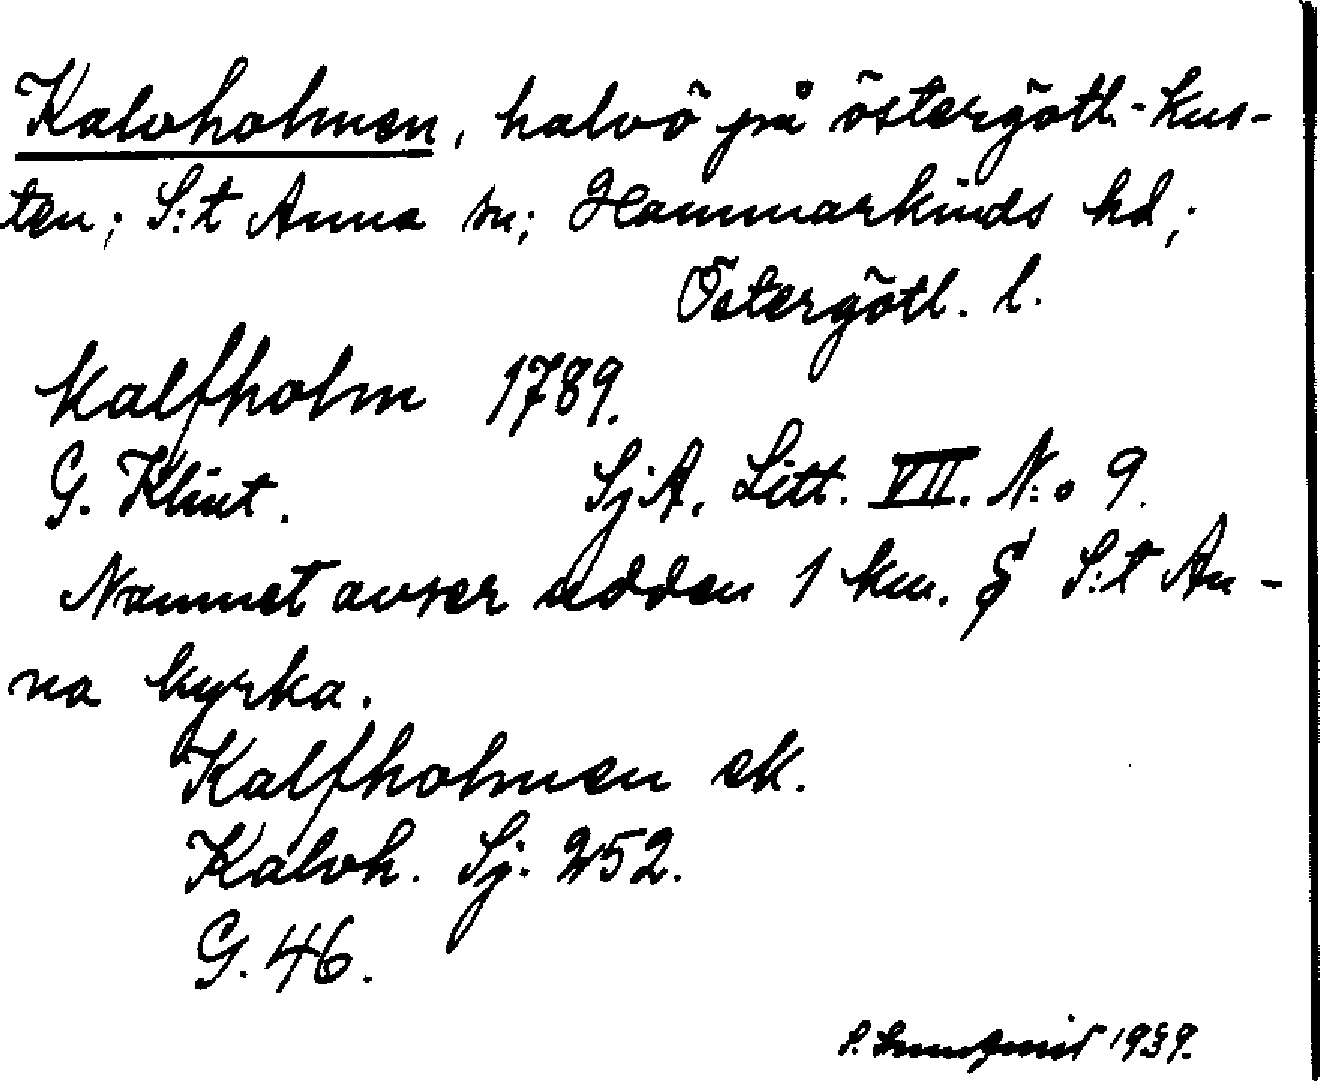 Kalvholmen, halvö på östergötl.-kus-
ten; S:t Anna sn; Hammarkinds hd;
Östergötl. l.
Kalfholm 1789.
G. Klint. SjA, Litt. VII. N:o 9.
Namnet avser udden 1 km. S S:t An-
na kyrka.
Kalfholmen ek.
Kalvh. Sj. 252.
G. 46.
1939.